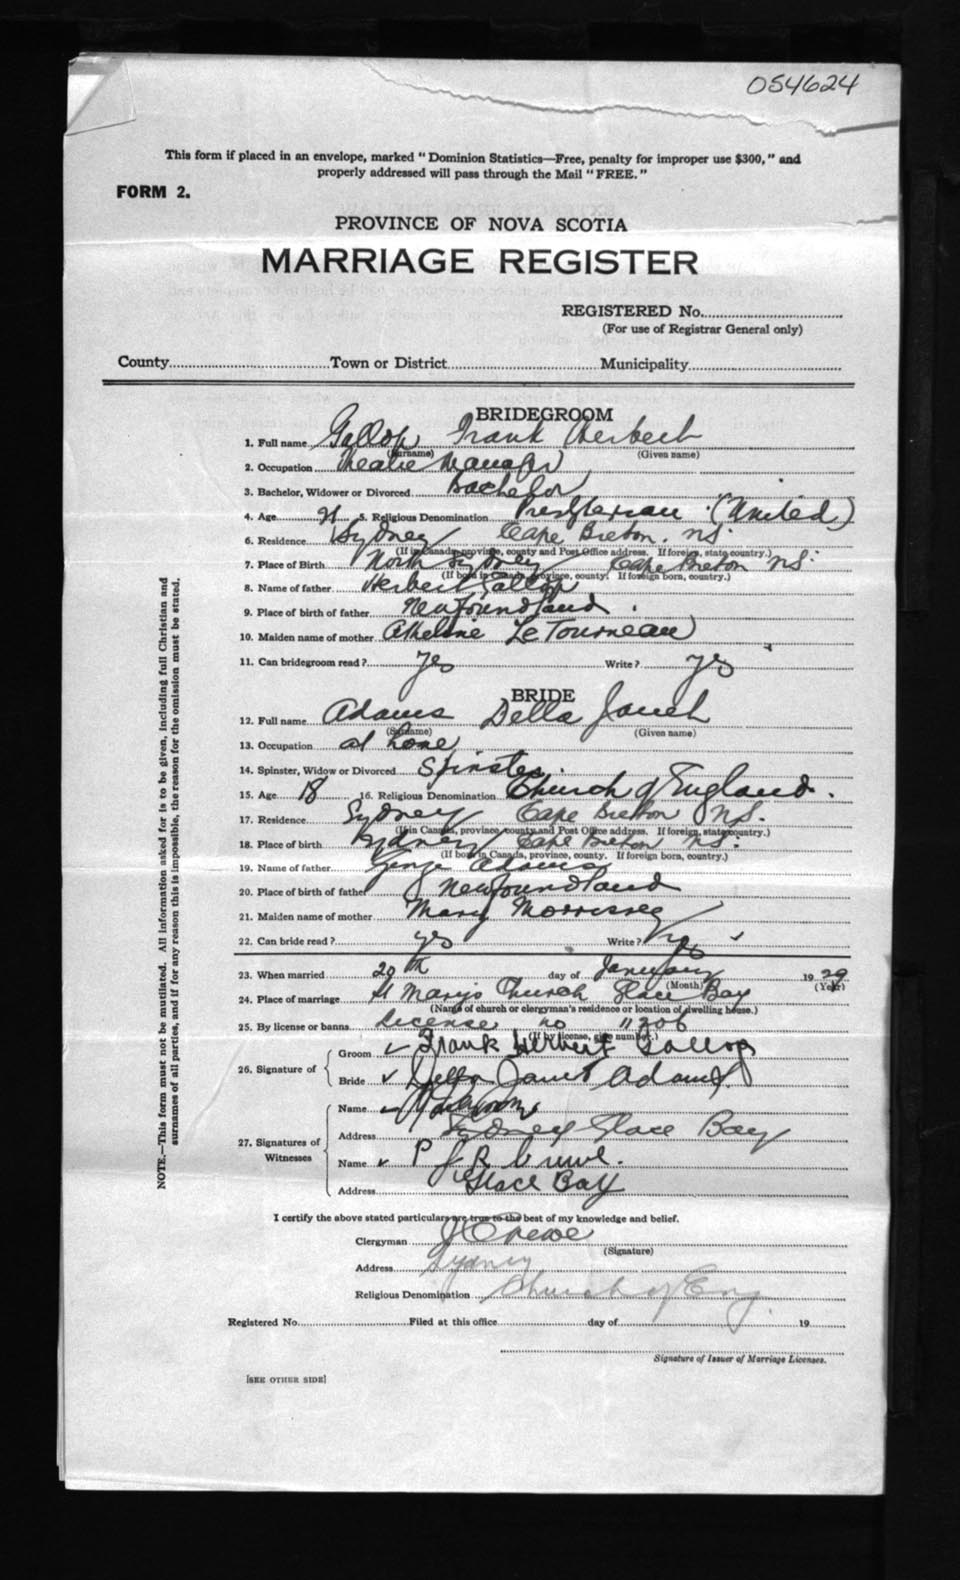 054624
This form if placed in an envelope, marked "Dominion Statistics—Free, penalty for improper use $300," and
properly addressed will pass through the Mail "FREE."
FORM 2.
PROVINCE OF NOVA SCOTIA
MARRIAGE REGISTER
REGISTERED No.
(For use of Registrar General only)
County Town or District Municipality
BRIDEGROOM
1. Full name Gallop Frank Herbert
(Surname) (Given name)
2. Occupation Theatre Manager
3. Bachelor, Widower or Divorced Bachelor
4. Age 21 5. Religious Denomination Presbyterian (United)
6. Residence Sydney Cape Breton. NS.
(If in Canada, province, county and Post Office address. If foreign, state country.)
7. Place of Birth North Sydney Cape Breton NS.
(If born in Canada, province, county. If foreign born, country.)
8. Name of father Herbert Gallop
9. Place of birth of father Newfoundland.
10. Maiden name of mother Atheline Le Tourneau
11. Can bridegroom read? yes Write? yes
BRIDE
12. Full name Adams Della Janet
(Surname) (Given name)
13. Occupation at home
14. Spinster, Widow or Divorced Spinster.
15. Age 18 16. Religious Denomination Church of England.
17. Residence Sydney Cape Breton NS.
(If in Canada, province, county and Post Office address. If foreign, state country.)
18. Place of birth Sydney Cape Breton NS.
(If born in Canada, province, county. If foreign born, country.)
19. Name of father George Adams
20. Place of birth of father Newfoundland
21. Maiden name of mother Mary Morrissey
22. Can bride read? yes Write? yes
23. When married 20th day of January 1929
(Month) (Year)
24. Place of marriage St Mary's Church Glace Bay
(Name of church or clergyman's residence or location of dwelling house.)
25. By license or banns License no 11206
(If by license, give number.)
26. Signature of
Groom Frank Herbert Gallop
Bride Della Janet Adams.
27. Signatures of
Witnesses
Name
Address Sydney Glace Bay
Name P
Address Glace Bay
I certify the above stated particulars are true to the best of my knowledge and belief.
Clergyman
(Signature)
Address Sydney
Religious Denomination Church of Eng.
Registered No. Filed at this office day of 19
Signature of Issuer of Marriage Licenses.
[SEE OTHER SIDE]
NOTE.—This form must not be mutilated. All information asked for is to be given, including full Christian and
surnames of all parties, and if for any reason this is impossible, the reason for the omission must be stated.